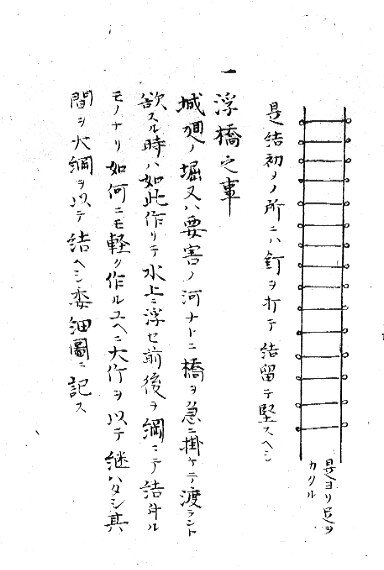 是ヨリ足ヲ
カクル
是結初メノ所ニハ釘ヲ打テ結留テ堅スヘシ
一 浮橋之事
城廻ノ堀又ハ要害ノ河ナトニ橋ヲ急ニ掛ケテ渡ラント
欲スル時ハ如此作リテ水上ニ浮セ前後ヲ綱ニテ結
モノナリ如何ニモ軽ク作ルユヘニ大竹ヲ以テ継ハタシ其
間ヲ大綱ヲ以テ結ヘシ委細圖ニ記ス